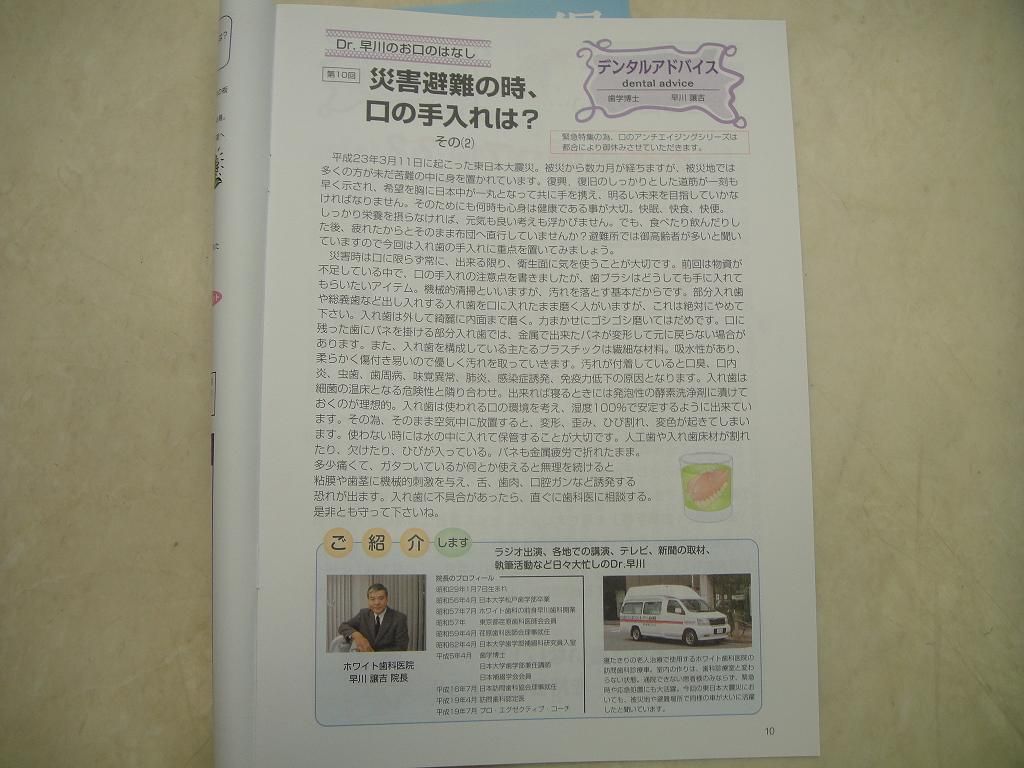 Dr. 早川のお口のはなし
第10回
災害避難の時、
口の手入れは？
その(2)
デンタルアドバイス
dental advice
歯学博士 早川 譲吉
緊急特集の為、口のアンチエイジングシリーズは
都合により御休みさせていただきます。
平成23年3月11日に起こった東日本大震災。被災から数カ月が経ちますが、被災地では
多くの方が未だ苦難の中に身を置かれています。復興、復旧のしっかりとした道筋が一刻も
早く示され、希望を胸に日本中が一丸となって共に手を携え、明るい未来を目指していかな
ければなりません。そのためにも何時も心身は健康である事が大切。快眠、快食、快便。
しっかり栄養を摂らなければ、元気も良い考えも浮かびません。でも、食べたり飲んだりし
た後、疲れたからとそのまま布団へ直行していませんか？避難所では御高齢者が多いと聞い
ていますので今回は入れ歯の手入れに重点を置いてみましょう。
災害時は口に限らず常に、出来る限り、衛生面に気を使うことが大切です。前回は物資が
不足している中で、口の手入れの注意点を書きましたが、歯ブラシはどうしても手に入れて
もらいたいアイテム。機械的清掃といいますが、汚れを落とす基本だからです。部分入れ歯
や総義歯など出し入れする入れ歯を口に入れたまま磨く人がいますが、これは絶対にやめて
下さい。入れ歯は外して綺麗に内面まで磨く。力まかせにゴシゴシ磨いてはだめです。口に
残った歯にバネを掛ける部分入れ歯では、金属で出来たバネが変形して元に戻らない場合が
あります。また、入れ歯を構成している主たるプラスチックは繊細な材料。吸水性があり、
柔らかく傷付き易いので優しく汚れを取っていきます。汚れが付着していると口臭、口内
炎、虫歯、歯周病、味覚異常、肺炎、感染症誘発、免疫力低下の原因となります。入れ歯は
細菌の温床となる危険性と隣り合わせ。出来れば寝るときには発泡性の酵素洗浄剤に漬けて
おくのが理想的。入れ歯は使われる口の環境を考え、湿度100％で安定するように出来てい
ます。その為、そのまま空気中に放置すると、変形、歪み、ひび割れ、変色が起きてしまい
ます。使わない時には水の中に入れて保管することが大切です。人工歯や入れ歯床材が割れ
たり、欠けたり、ひびが入っている。バネも金属疲労で折れたまま。
多少痛くて、ガタついているが何とか使えると無理を続けると
粘膜や歯茎に機械的刺激を与え、舌、歯肉、口腔ガンなど誘発する
恐れが出ます。入れ歯に不具合があったら、直ぐに歯科医に相談する。
是非とも守って下さいね。
ご紹介します
ラジオ出演、各地での講演、テレビ、新聞の取材、
執筆活動など日々大忙しのDr.早川
ホワイト歯科医院
早川 譲吉 院長
院長のプロフィール
昭和29年1月7日生まれ
昭和56年4月 日本大学松戸歯学部卒業
昭和57年7月 ホワイト歯科の前身早川歯科開業
昭和57年 東京都荏原歯科医師会会員
昭和59年4月 荏原歯科医師会理事就任
昭和62年4月 日本大学歯学部補綴科研究員入室
平成5年4月 歯学博士
日本大学歯学部兼任講師
日本補綴学会会員
平成16年7月 日本訪問歯科協会理事就任
平成19年4月 訪問歯科認定医
平成19年7月 プロ・エグゼクティブ・コーチ
寝たきりの老人治療で使用するホワイト歯科医院の
訪問歯科診療車。室内の作りは、歯科診療室と変わ
らない状態。通院できない患者様のみならず、緊急
時や応急処置にも大活躍。今回の東日本大震災にお
いても、被災地や避難場所で同様の車が大いに活躍
したと聞いています。
10